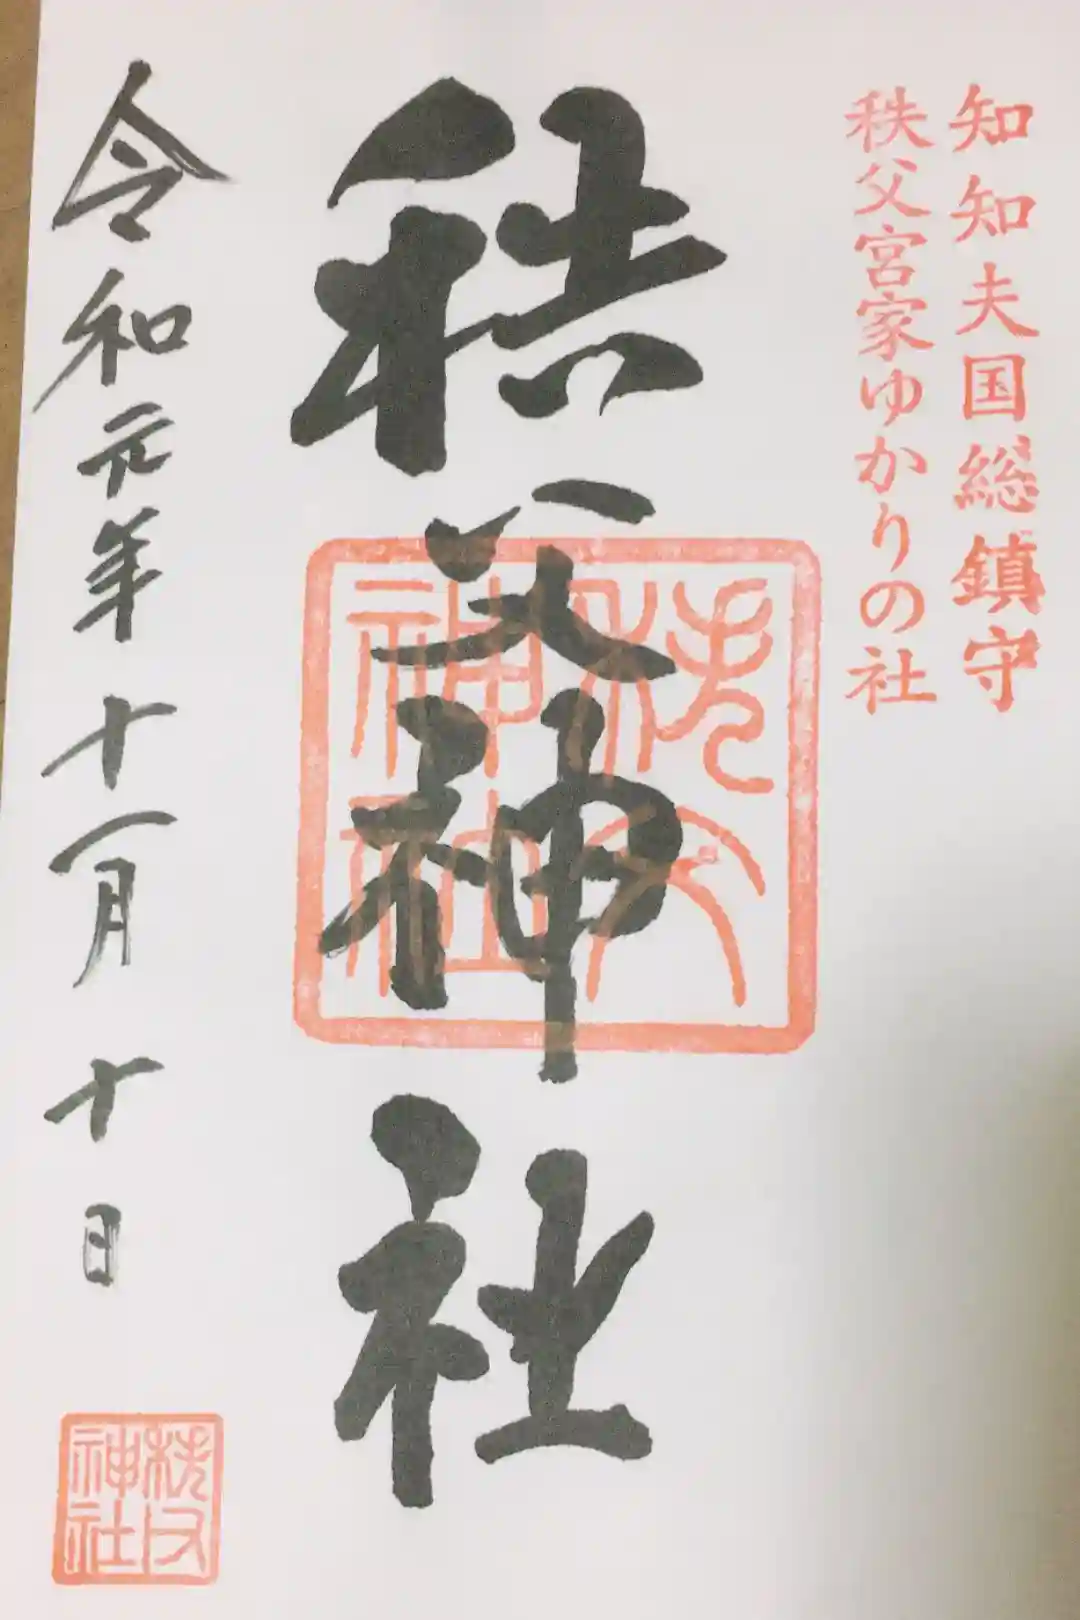 知知夫国総鎮守
秩父宮家ゆかりの社
秩父神社
秩父神社
令和元年十一月十日
秩父神社